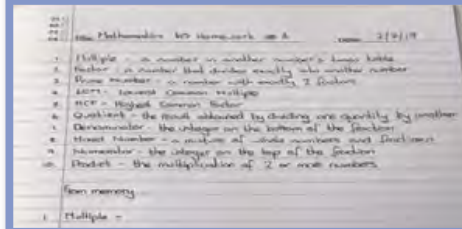 Mathematics KO Homework 2/9/19
1. Multiple - a number in another number's times table
2. Factor - a number that divides exactly into another number
3. Prime Number - a number with exactly 2 factors
4. LCM - Lowest Common Multiple
5. HCF - Highest Common Factor
6. Quotient - the result obtained by dividing one quantity by another
7. Denominator - the integer on the bottom of the fraction
8. Mixed Number - a mixture of whole numbers and fractions
9. Numerator - the integer on the top of the fraction
10. Product - the multiplication of 2 or more numbers
From memory
1 Multiple -